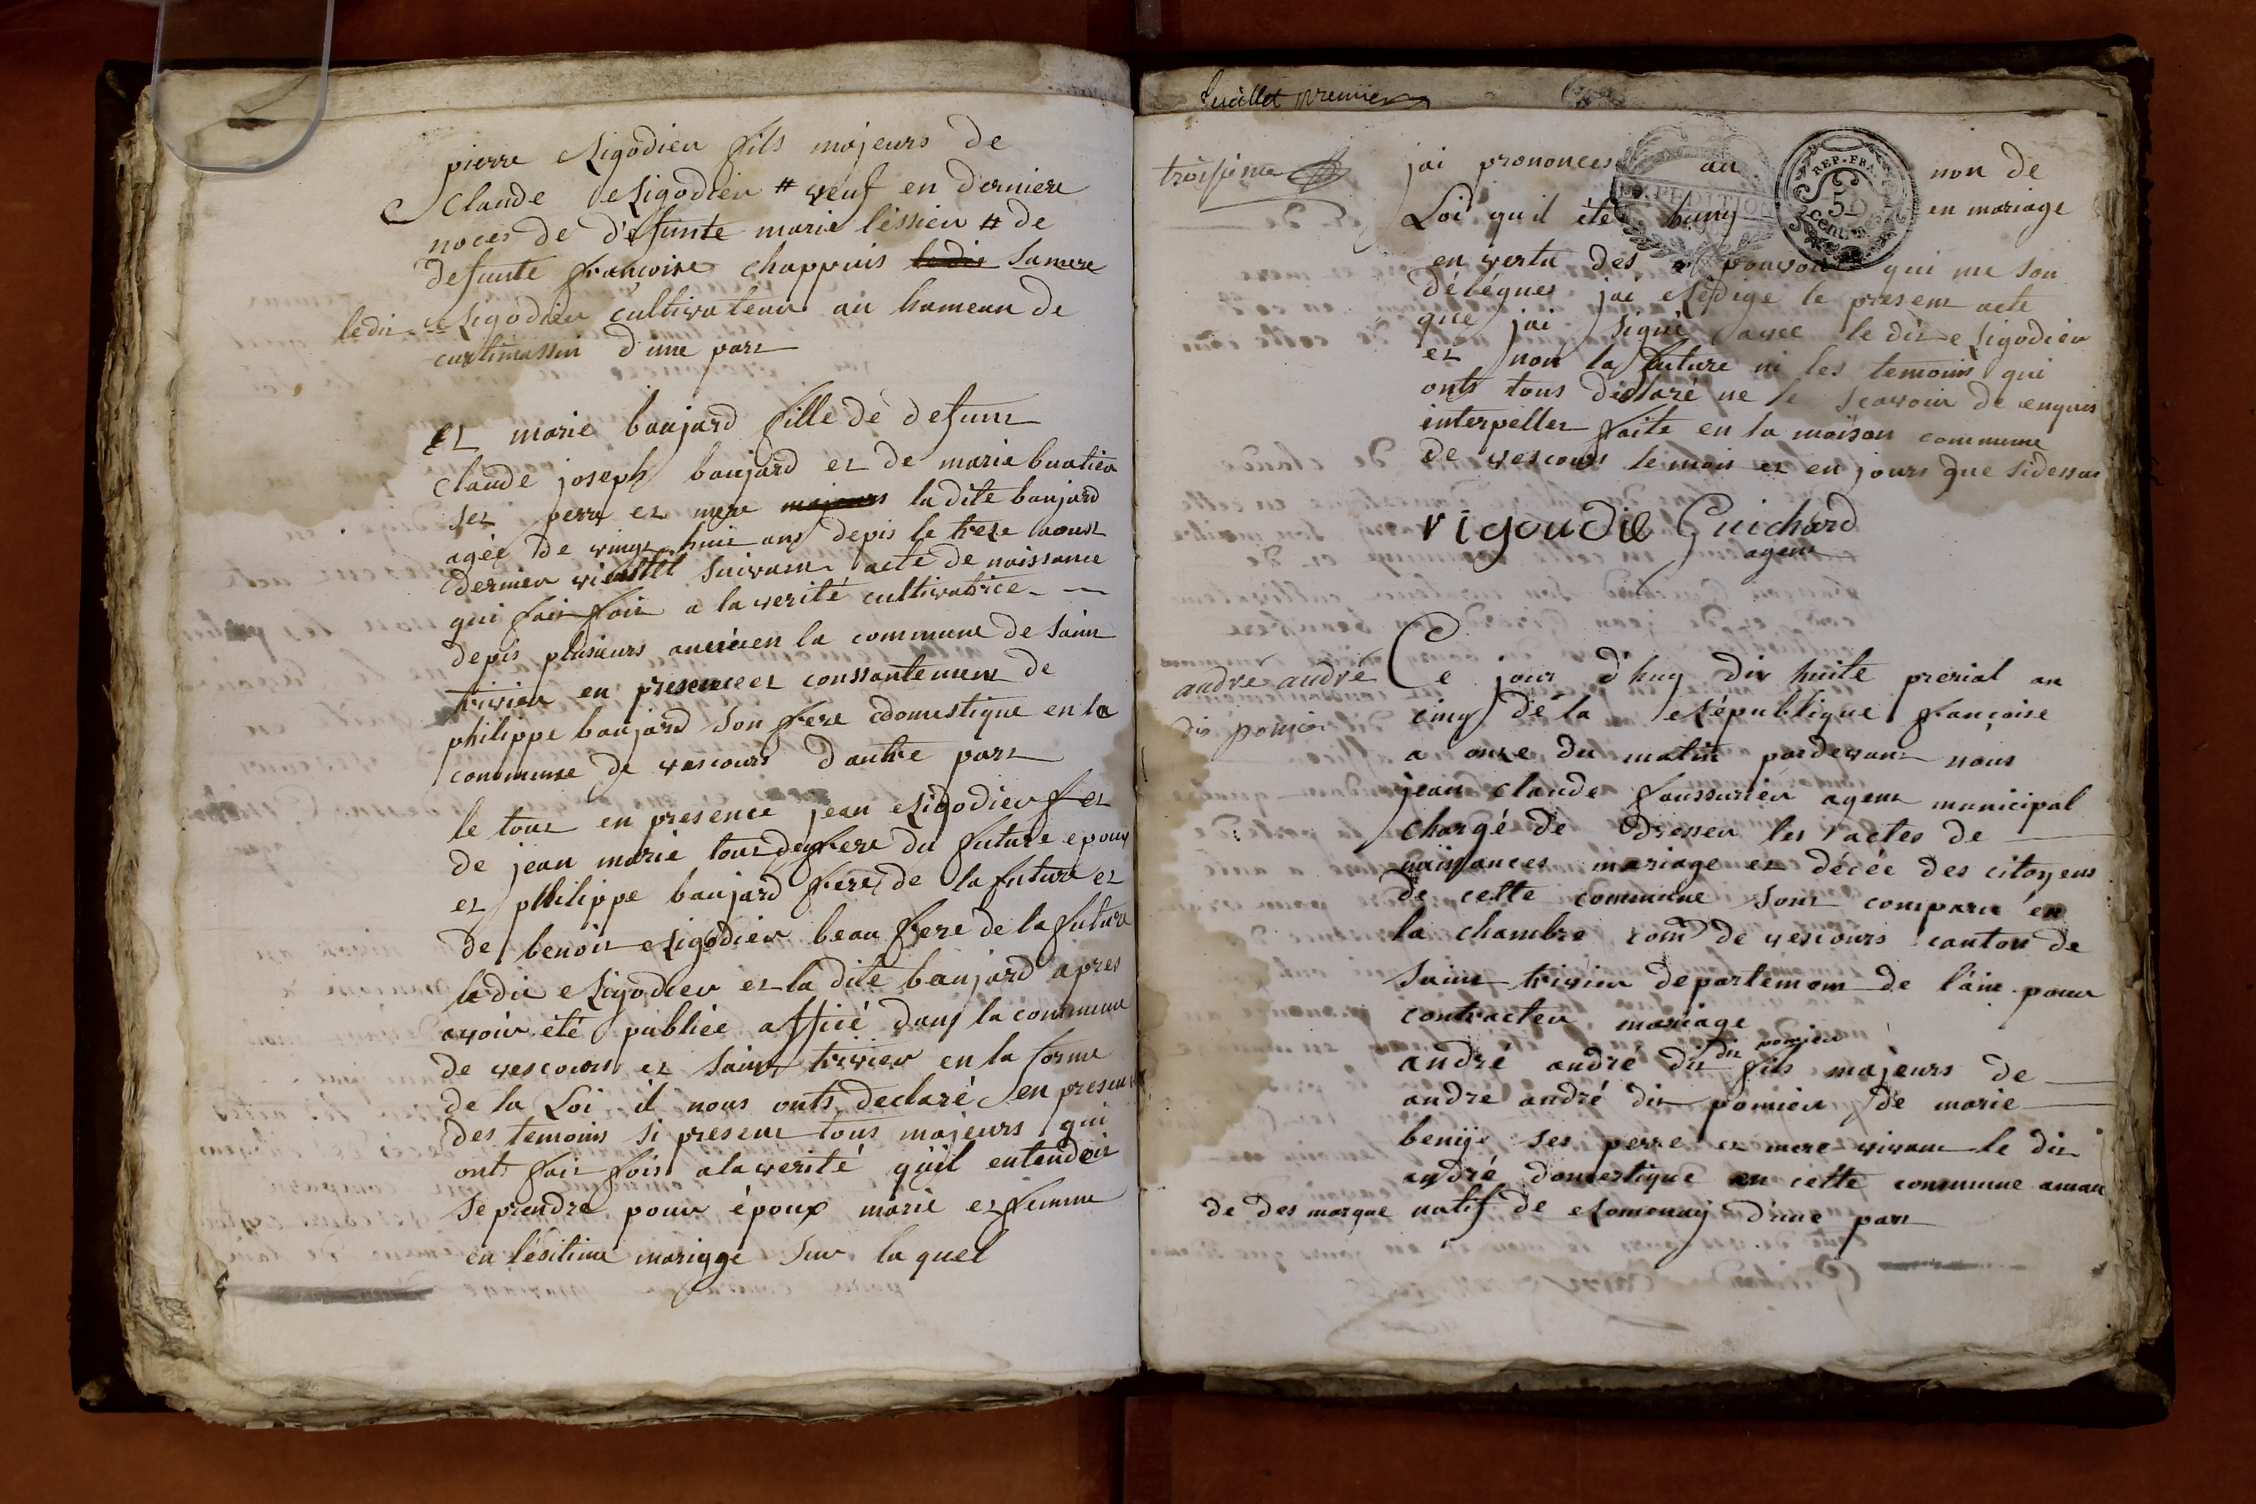 pierre Rigodier fils majeurs de
Claude Rigodier # veuf en derniere
noces de defunte marie lessieu # de
defunte francoise chappuis ledit sa mere
ledit Rigodier cultivateur au hameau de
curtimassin d'une part
et marie baujard fille de defunt
Claude joseph baujard et de marie buatier
ses perre et mere majeurs la dite baujard
agée de vingt huit ans depis le treze aoust
dernier vieustil suivant acte de naissance
qui fait foit a la verité cultivatrice
depis plusieurs année en la commune de saint
trivier en presence et consantement de
philippe baujard son frere domestique en la
commune de vescours d'autre part
le tout en presence jean Rigodier f et
de jean marie tout deux frere du future epoux
et philippe baujard frere de la future et
de benoit Rigodier beau frere de la future
ledit Rigodier et la dite baujard apres
avoir été publiée affiié dans la commune
de vescours et saint trivier en la forme
de la Loi il nous onts declaré en presence
des temoins si present tous majeurs qui
onts fait foit a la verité quil entendoit
se prendre pour époux marie et femme
en légitime mariage sur la quel
feuillet premier
troisieme
jai prononces au non de
REP. FRA.
50
CENT.
Loi qu'il été huny en mariage
en vertu des pouvoir qui me son
délégues jai Redige le present acte
que jai signé avec le dit Rigodier
et non la future ni les temoins qui
onts tous déclaré ne le scavoir de enquis
interpeller faite en la maison commune
de vescours le mois et en jours que sidessus
rigoudie Guichard
agent
andré andré
dit pomier
Ce jour d'huy dix huite prerial an
cinq de la République francoise
a onze du matin pardevant nous
jean claude foussurier agent municipal
chargé de dresser les actes de
naissances mariage et décée des citoyens
de cette commune sont comparu en
la chambre com de vescours canton de
saint trivier departement de l'ain pour
contracter mariage
dit pomier
andré andre dit fils majeurs de
andre andré dit pomier de marie
beniji ses perre et mere vivant le dit
andré domestique en cette commune
de des marque natif de Romenay d'une part